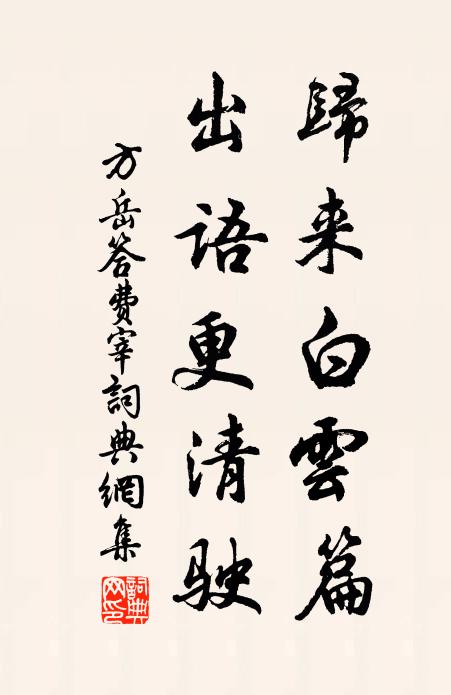 歸来白雲篇
出語更清駛
方岳答費宰詞典網集
詞典网印